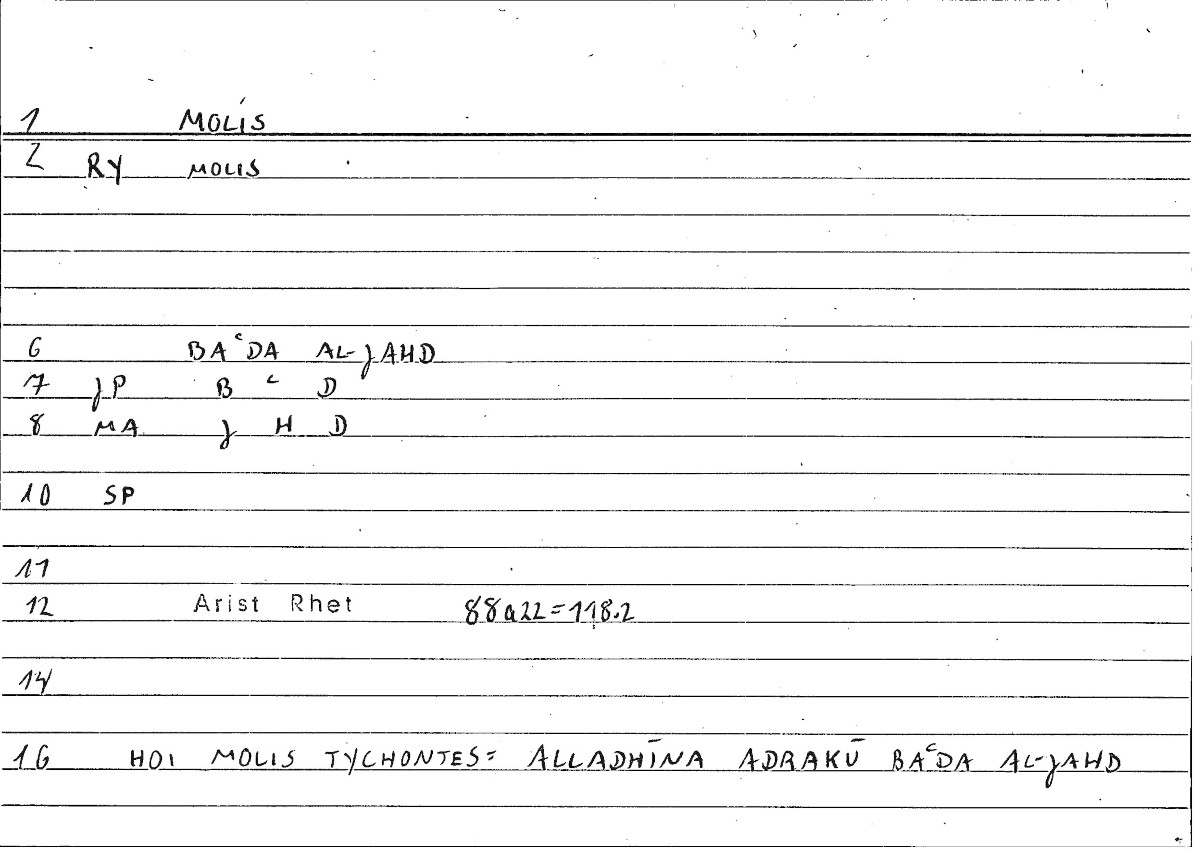 1 MOLÍS
2 RY MOLIS
6 BAᶜDA AL-JAHD
7 JP B ᶜ D
8 MA J H D
10 SP
11
12 Arist Rhet 88a22=118.2
14
16 HOI MOLIS TYCHONTES= ALLADHĪNA ADRAKŪ BAᶜDA AL-JAHD